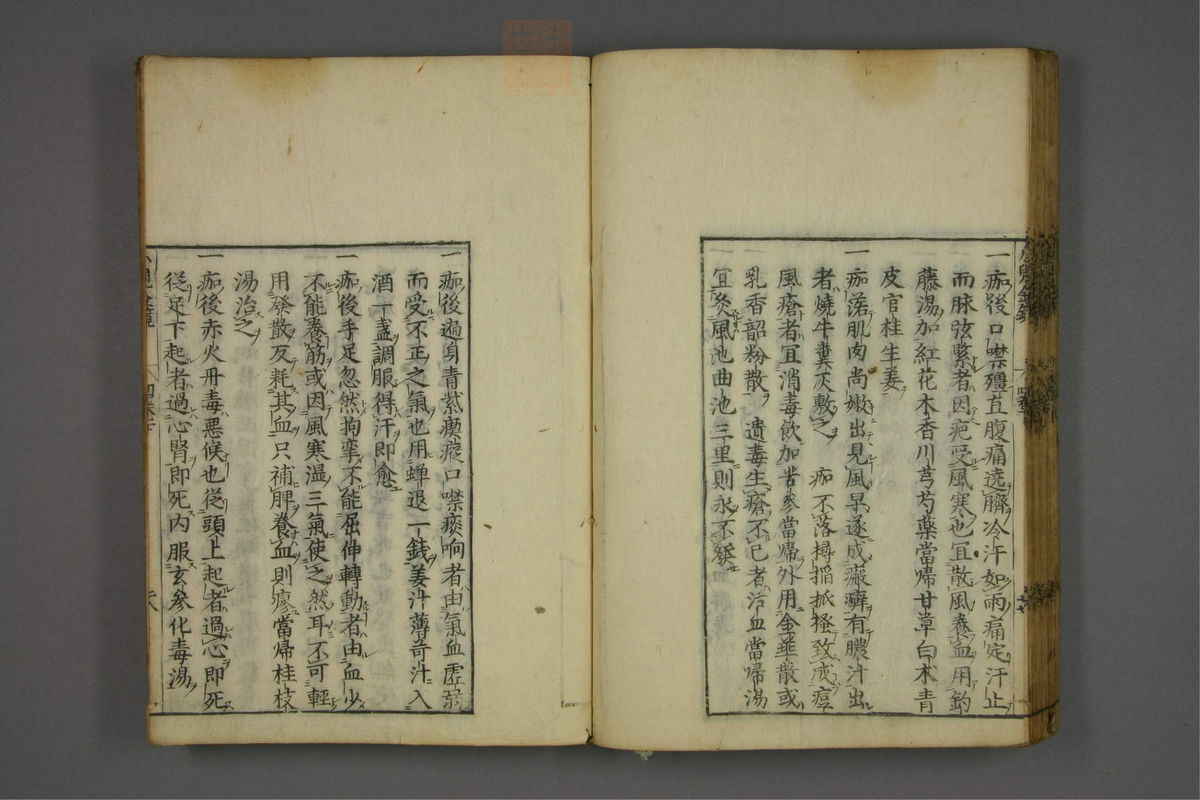 一 痂後口噤殭直腹痛遶臍冷汗如雨痛定汗止
而脉弦緊者因瘡受風寒也宜散風養血用釣
藤湯加紅花木香川芎芍藥當帰甘草白木青
皮官桂生姜
一 痂落肌肉尚嫩出見風早遂成癩癬有膿汁出
者燒牛糞灰敷之 痂不落撏搯抓搔致成痘
風瘡者宜消毒飲加苦參當帰外用金韮散或
乳香韶粉散 遺毒生瘡不已者活血當帰湯
宜灸風池曲池三里則永不發
一 痂後遍身青紫瘈瘲口噤痰响者由氣血虚弱
而受不正之氣也用蝉退一錢姜汁薄荷汁入
酒一盞調服得汗即愈
一 痂後手足忽然拘挛不能屈伸轉動者由血少
不能養筋或因風寒温三氣使之然耳不可輕
用發散反耗其血只補脾養血則瘳當帰桂枝
湯治之
一 痂後赤火丹毒悪候也從頭上起者過心即死
從足下起者過心腎即死内服玄參化毒湯